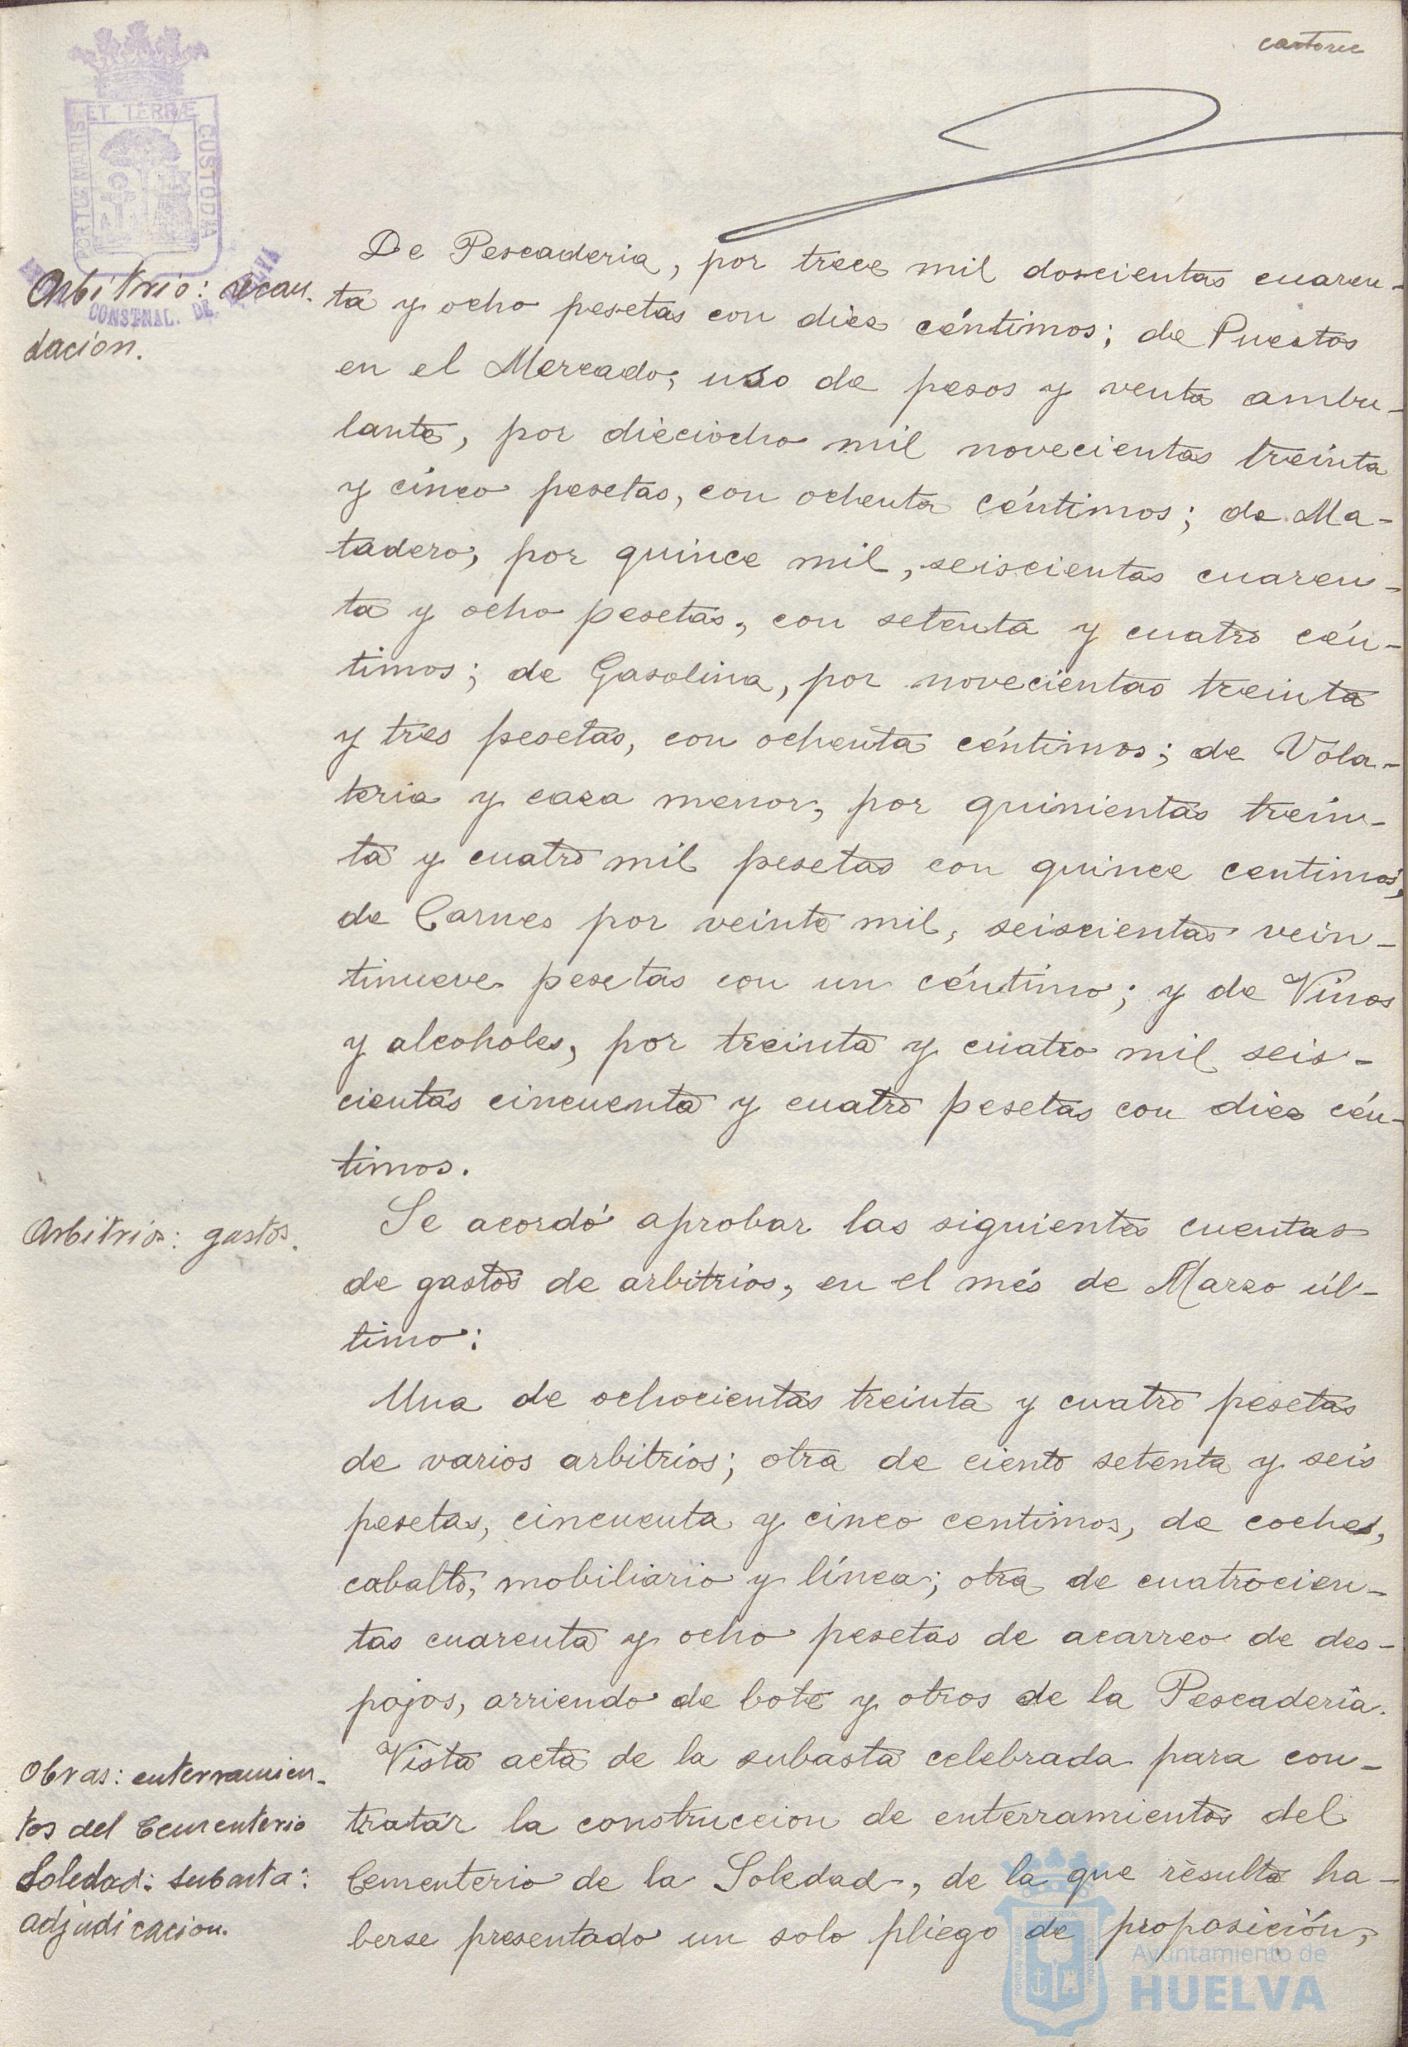 catorce
PORTUS MARIS ET TERRÆ CUSTODIA
CONSTNAL. DE HUELVA
Arbitrio: recau-
dación.
De Pescaderia, por trece mil doscientas cuaren-
ta y ocho pesetas con diez céntimos; de Puestos
en el Mercado, uso de pesos y venta ambu-
lante, por dieciocho mil novecientas treinta
y cinco pesetas, con ochenta céntimos; de Ma-
tadero, por quince mil, seiscientas cuaren-
ta y ocho pesetas, con setenta y cuatro cén-
timos; de Gasolina, por novecientas treinta
y tres pesetas, con ochenta céntimos; de Vola-
teria y caza menor, por quinientas trein-
ta y cuatro mil pesetas con quince centimos;
de Carnes por veinte mil, seiscientas vein-
tinueve pesetas con un céntimo; y de Vinos
y alcoholes, por treinta y cuatro mil seis-
cientas cincuenta y cuatro pesetas con diez cén-
timos.
Arbitrios: gastos.
Se acordó aprobar las siguientes cuentas
de gastos de arbitrios, en el més de Marzo úl-
timo:
Una de ochocientas treinta y cuatro pesetas
de varios arbitrios; otra de ciento setenta y seis
pesetas, cincuenta y cinco centimos, de coches,
caballo, mobiliario y línea; otra de cuatrocien-
tas cuarenta y ocho pesetas de acarreo de des-
pojos, arriendo de bote y otros de la Pescadería.
Obras: enterramien-
tos del Cementerio
Soledad: subasta:
adjudicacion.
Vista acta de la subasta celebrada para con-
tratar la construccion de enterramientos del
Cementerio de la Soledad, de la que résulta ha-
berse presentado un solo pliego de proposición,
Ayuntamiento de
HUELVA